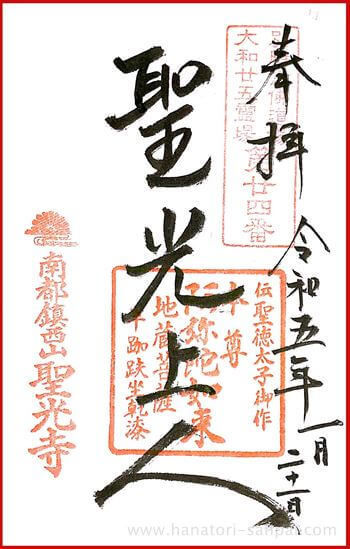 奉拝
令和五年一月二十一日
大和廿五霊場
第廿四番
聖光上人
伝聖徳太子御作
本尊
阿弥陀如来
地蔵菩薩
半跏趺坐乾漆
南都鎮西山聖光寺
www.hanatori-sanpai.com